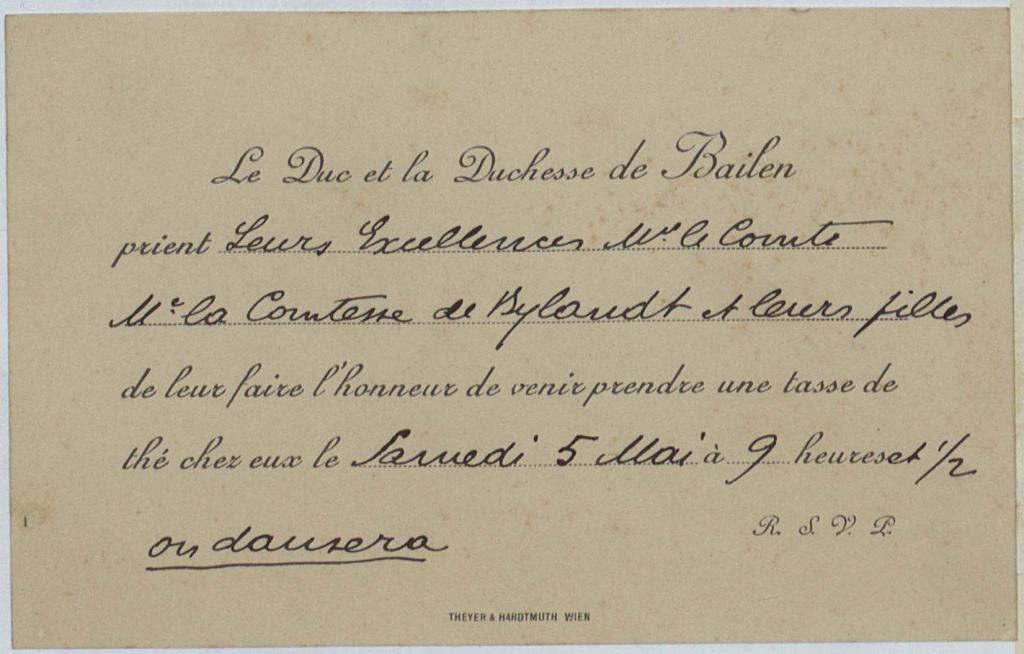 Le Duc et la Duchesse de Bailen
prient Leurs Excellences Mr. le Comte
Me. la Comtesse de Bylandt et leurs filles
de leur faire l'honneur de venir prendre une tasse de
thé chez eux le Samedi 5 Mai à 9 heures et 1/2
R. S. V. P.
on dansera
THEYER & HARDTMUTH WIEN